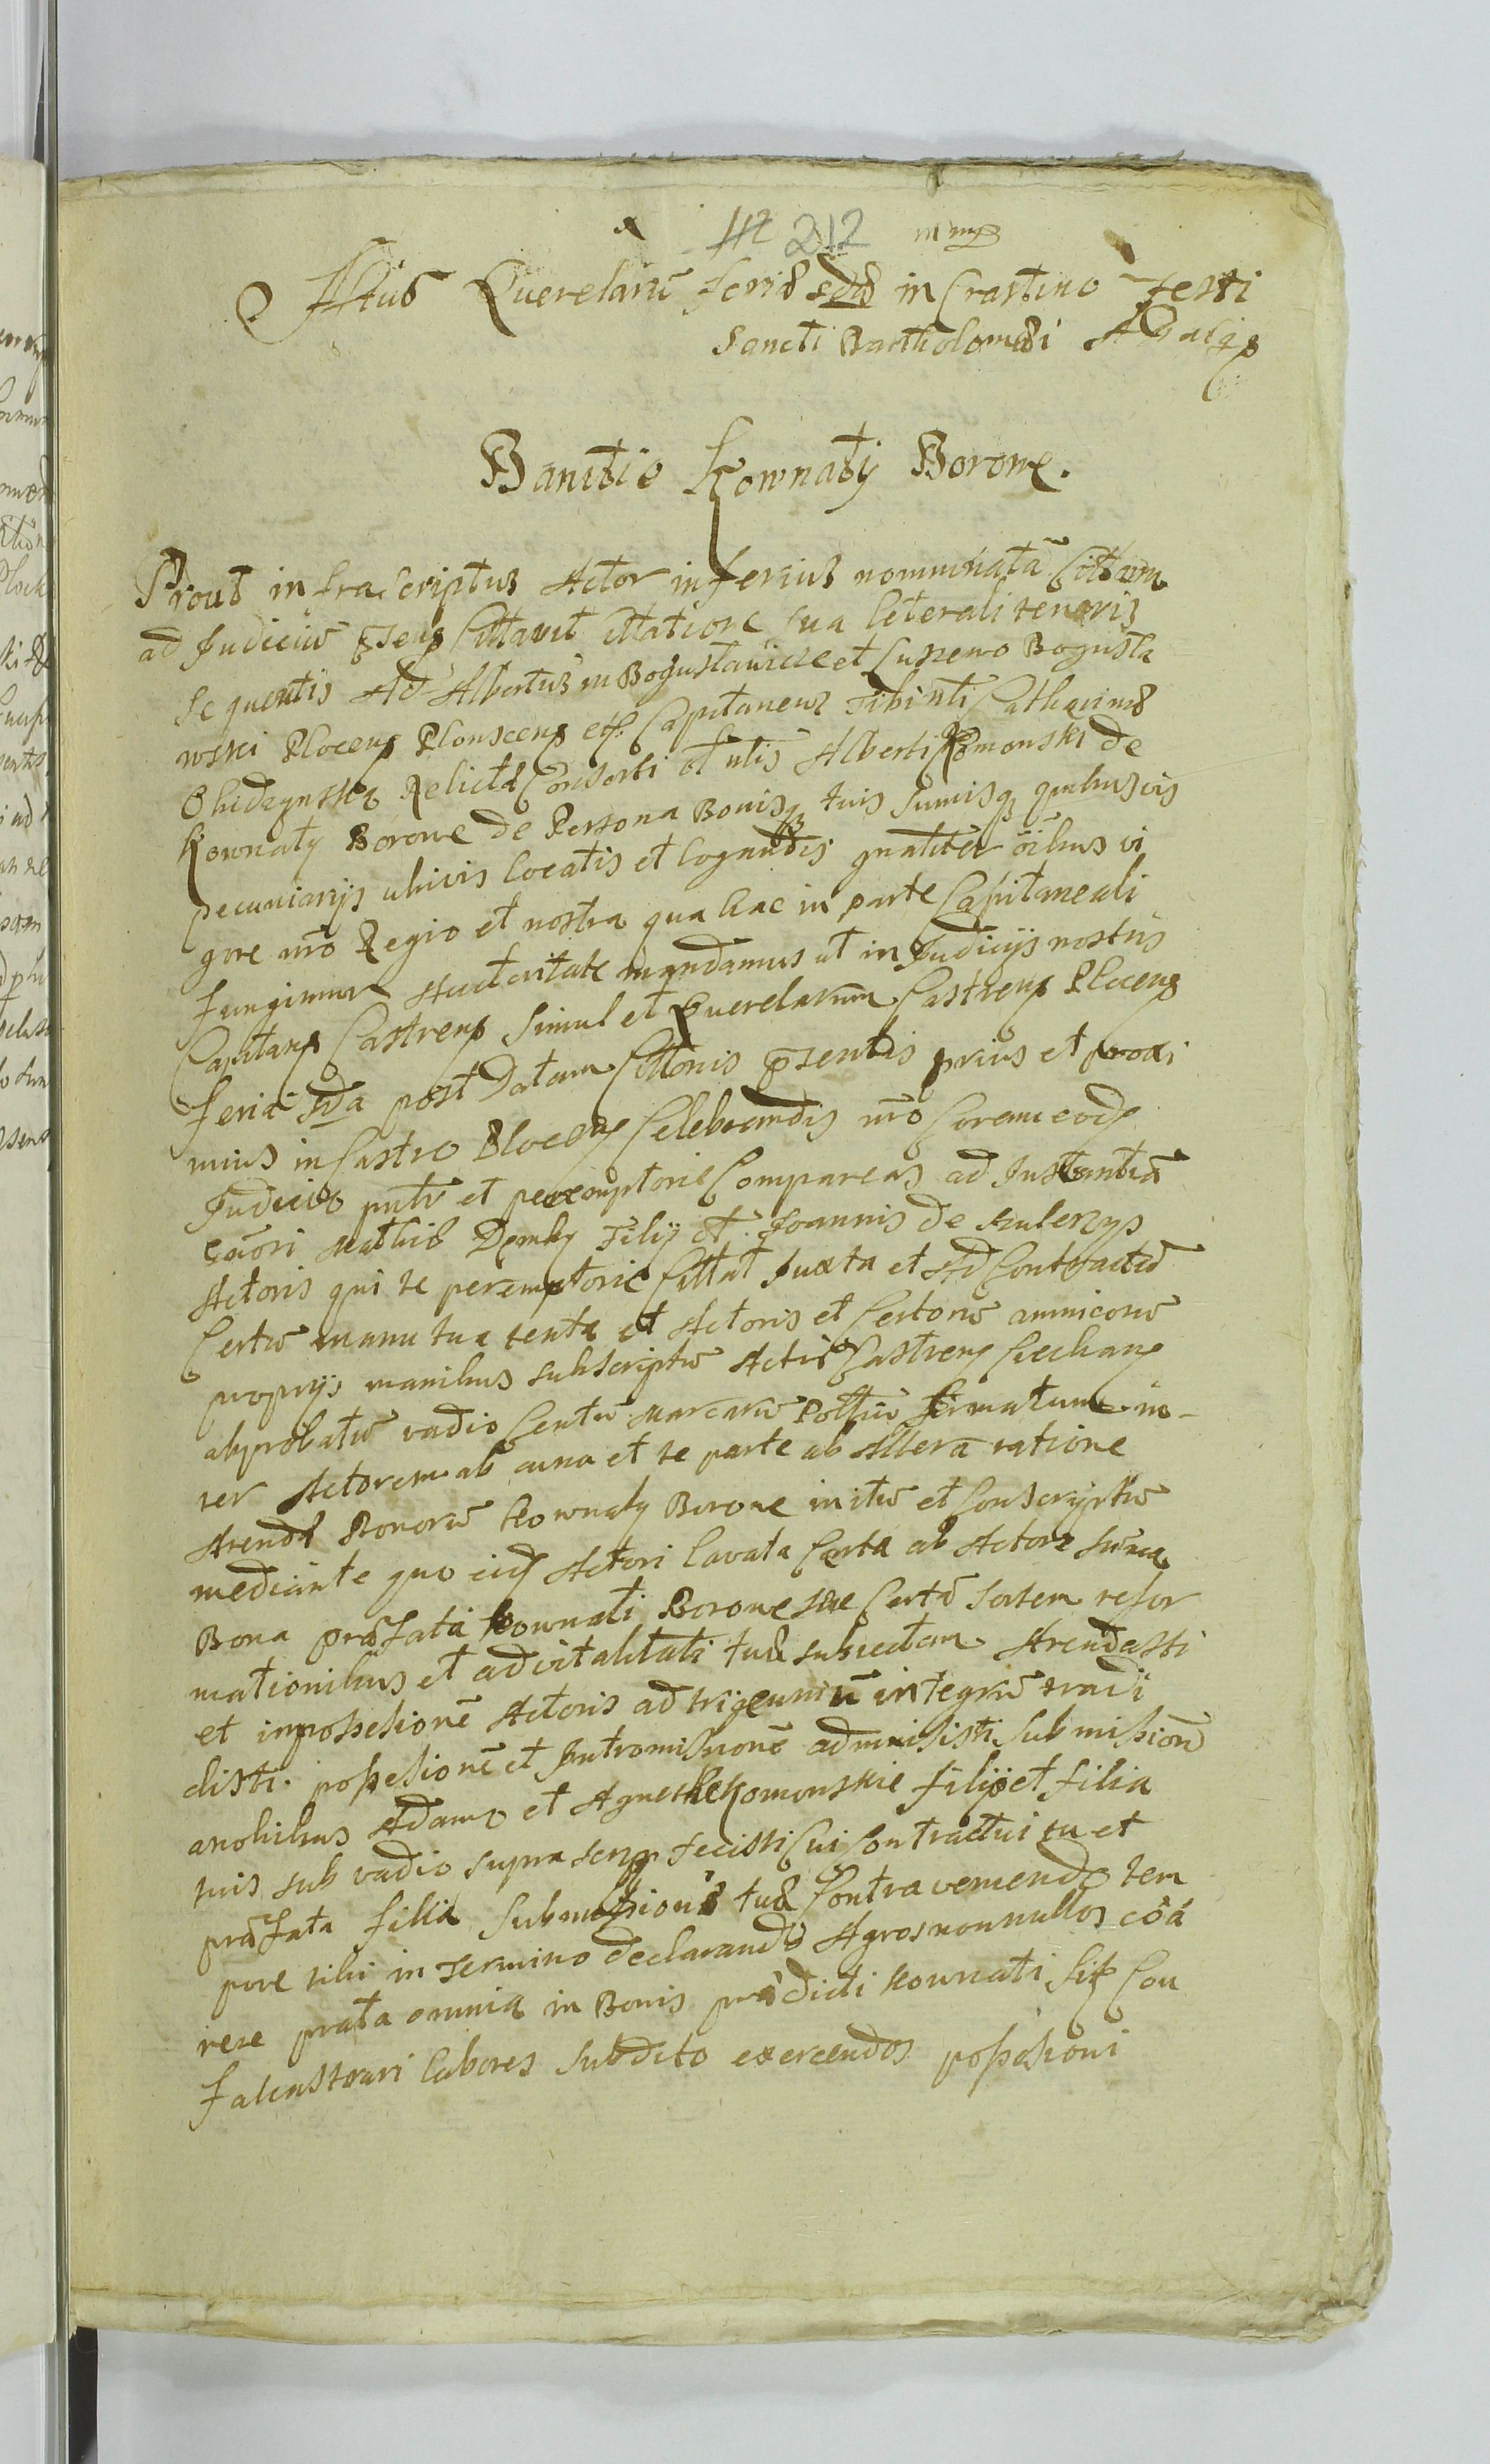 212
Actus Querelarũ feria sda in Crastino Festi
Sancti Bartholomæi
Banitio Kownaty Borowe.
Prout infrascriptus Actor inferius nominatã Cittam
ad Judiciũ Citavit Citatione sua literali tenoris
sequentis Albertus in Bogusławice et Bogusła
wski Plocens Plonscens etc Capitaneus Tibi Catharinæ
Relictæ Consorti ol nlis Alberti Komonski de
Kownaty Borowe de Persona Bonisq tuis sumisq quibusvis
pecuniarijs ubivis locatis et locandis gnaliter oibus vi
gore nro Regio et nostra qua hac in parte Capitaneali
fungimur Auctoritate mandamus ut in Judicijs nostris
Capitans Castrens simul et Querelarum Castrens Plocens
feria sda post Datam Cittonis psentis prius et proxi
mius in Castro Plocens Celebrandis nro Coram eods
Judicio et peremptorie Compareas ad Instantiã
Mathiæ Filij ol Joannis de
Actoris qui te peremptorie Cittat Juxta et Ad Contractũ
Certũ manu tua tenta et Actoris et Certorũ amicorũ
proprijs manibus subscriptũ Actis Castrens Ciechans
abprobatũ vadio Centũ Marcarũ Polliũ firmatum in-
ter Actorem ab una et te parte ab Altera ratione
Arendæ Bonorũ Kownaty Borowe initũ et Conscriptũ
mediante quo eid Actori Certa ab Actore sũma
Bona præfata Kownati Borowe seu Certã sortem refor
mationibus et advitalitati tuæ subiectam Arendasti
et in possesionẽ Actoris ad trijennĩũ integrũ tradi
disti. possesionẽ et Intromissionẽ admisisti submissionẽ
a nobilibus Adamo et Komonskie filijo et filia
tuis sub vadio supra fecisti Cui Contractui tu et
præfata filia submissioni tuæ Contraveniendo tem
pore tibi in Termino declarando Agros nonnullos
prata omnia in Bonis prædicti Kownati
falcastrari labores subdito exercendos possesioni